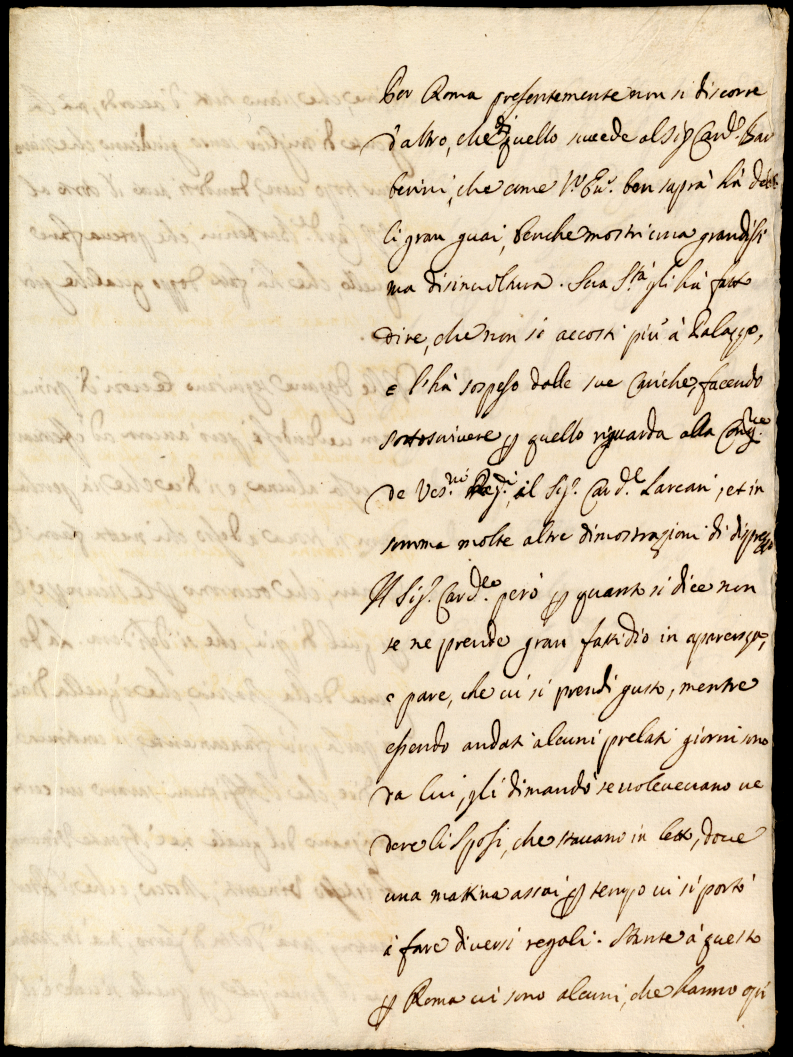 Per Roma presentemente non si discorre
d'altro, che di quello succede al Sig.r Card.le Bar
berini, che come V.ra Em.a ben saprà hà de
li gran guai, benche mostri una grandissi
ma disinvoltura. Sua S.tà gli hà fatto
dire, che non si accosti più à Palazzo,
e l'hà sospeso dalle sue cariche, facendo
sottoscrivere p quello riguarda alla Cong.ne
de Ves.vi Reg.ri, il Sig.r Card.le Carcani, et in
somma molte altre dimostrazioni di disprezzo
Il Sig.r Card.le però p quanto si dice non
se ne prende gran fastidio in aparenza,
e pare, che ci si prendi gusto, mentre
essendo andati alcuni prelati giorni sono
da lui, gli dimandò se volevevano ve
dere li sposi, che stavano in letto, dove
una mattina assai p tempo vi si portò
à fare diversi regali. Stante à questo
p Roma vi sono alcuni, che hanno opi